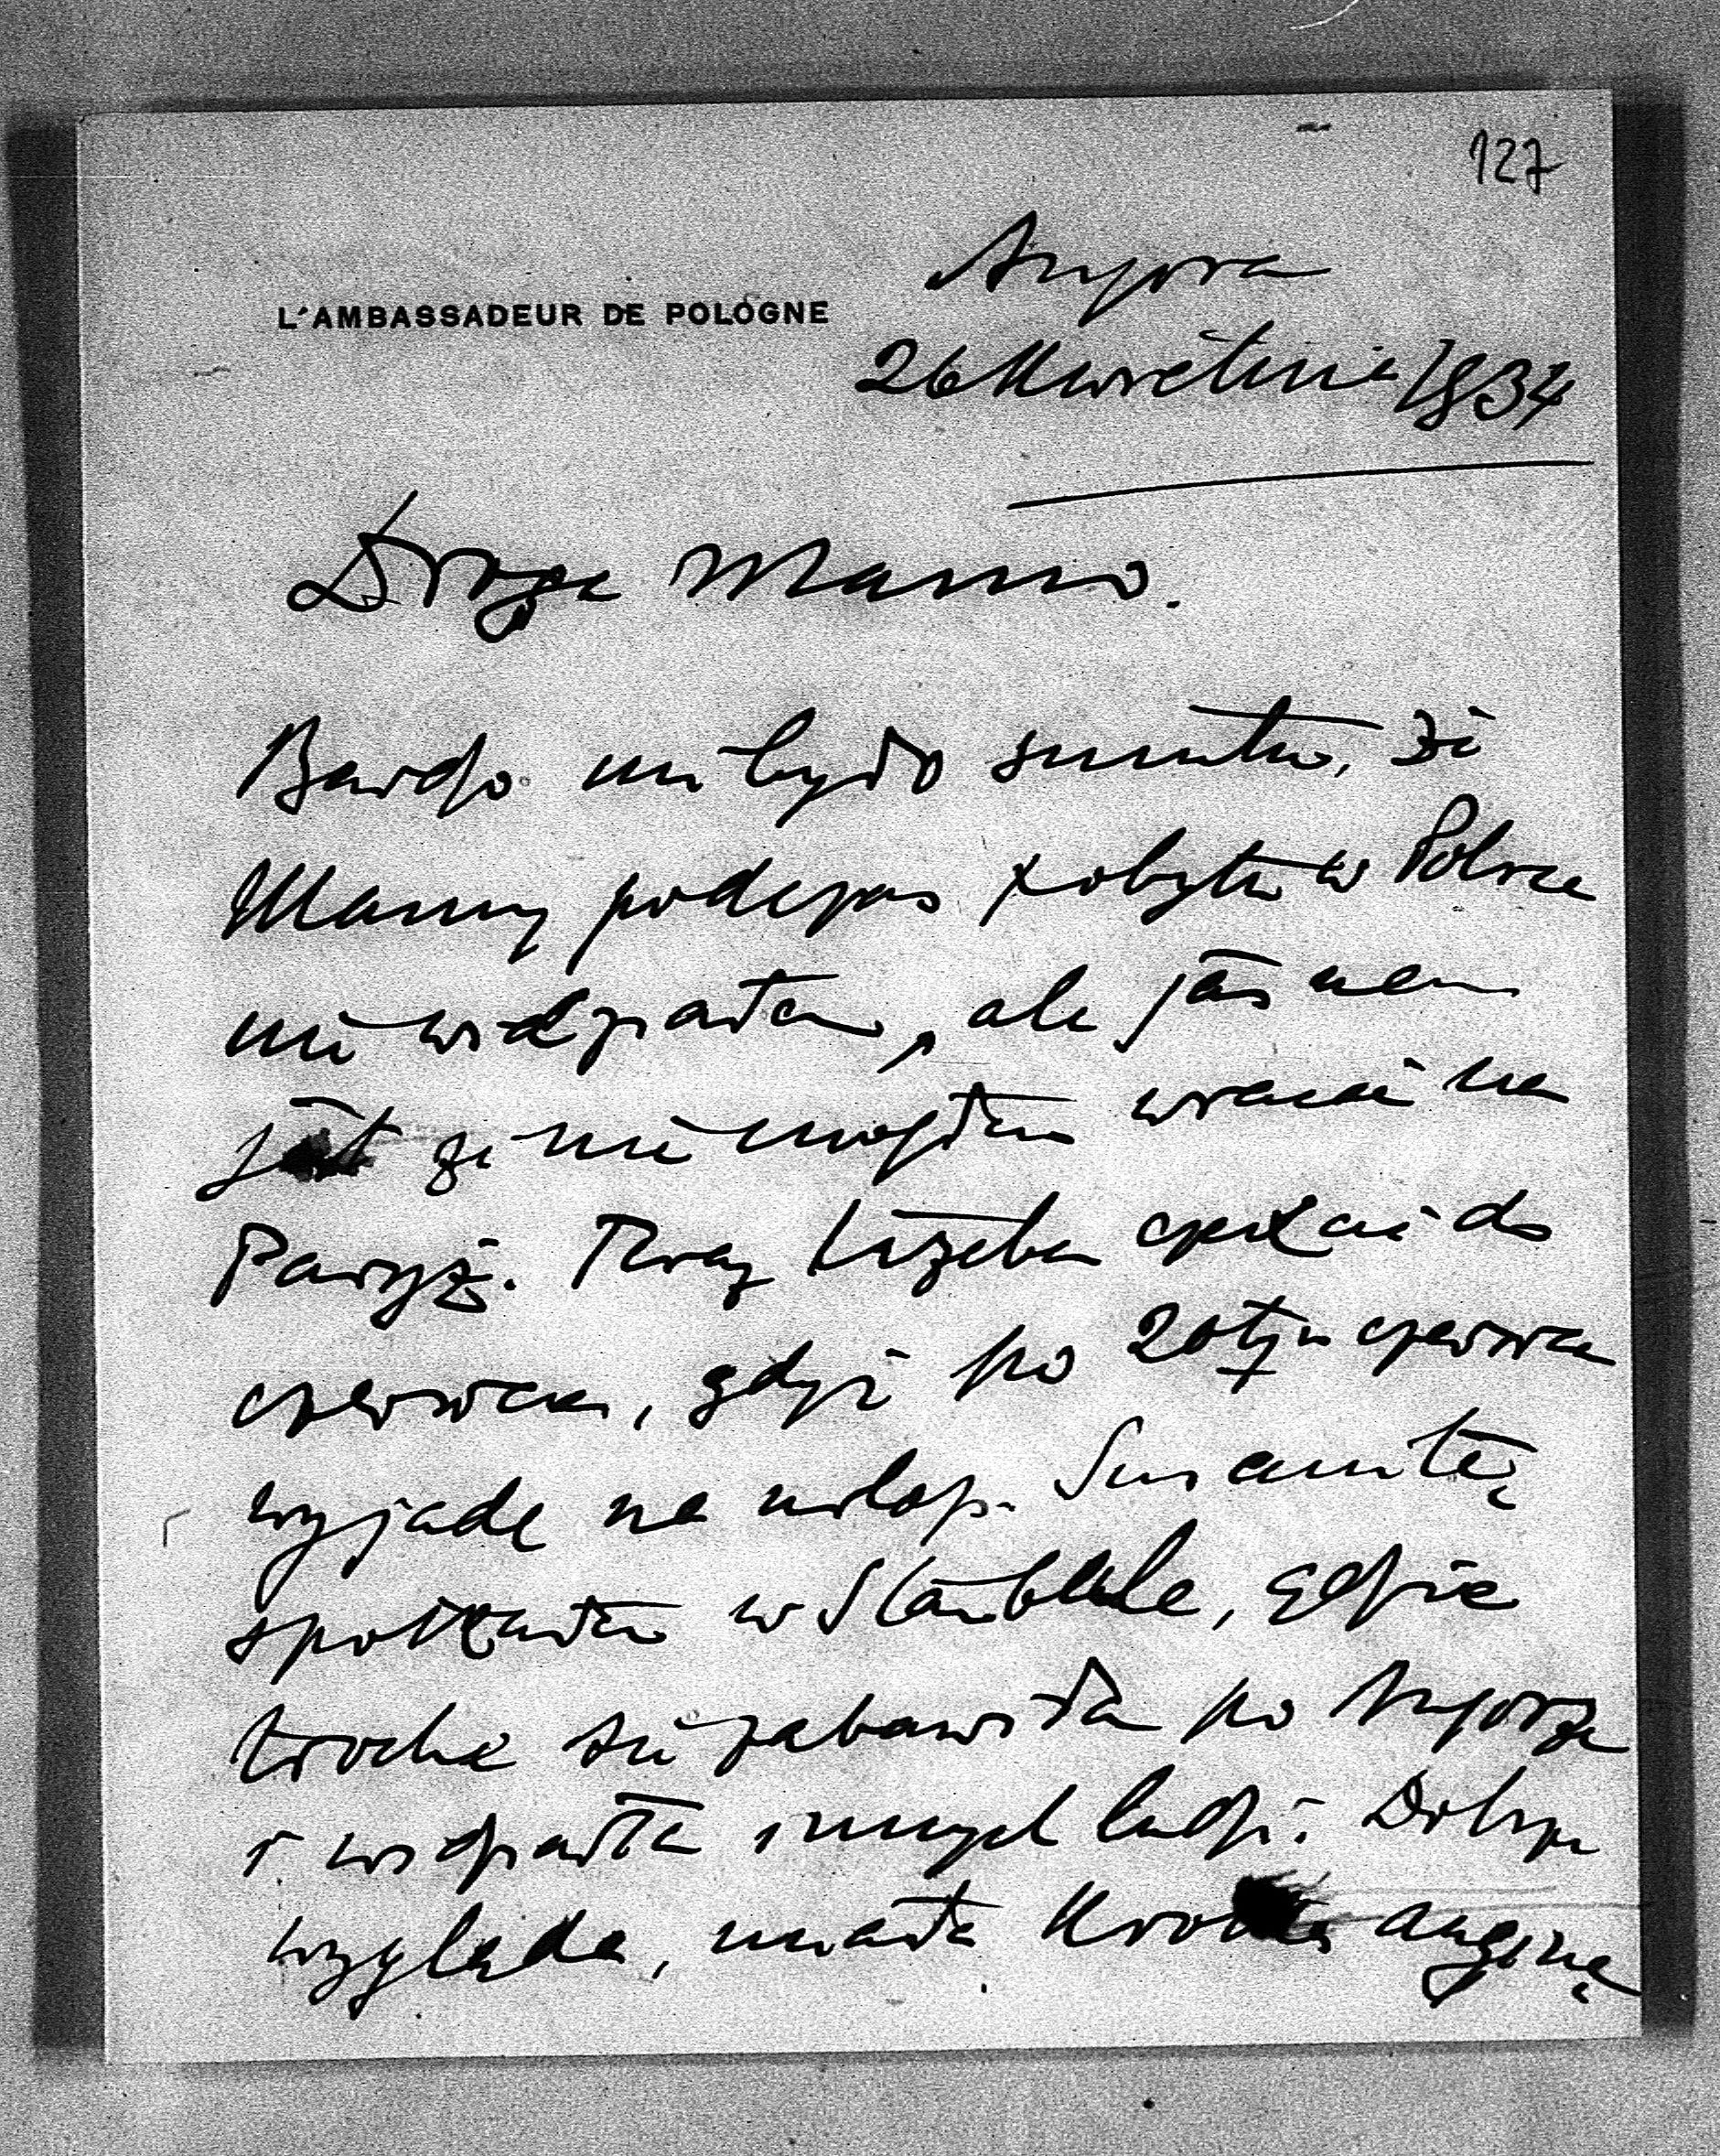 127
Angora
L'AMBASSADEUR DE POLOGNE
26 Kwietnia 1934
Droga Mamo.
Bardzo mi było smutno, że
Mamy podczas pobytu w Polsce
nie widziałem, ale jasnem
jest że nie mogłem wracać na
Paryż. Teraz trzeba czekać do
czerwca, gdyż po 20tym czerwca
wyjadę na urlop.
spotkałem w Stambule, gdzie
trochę się zabawiła po Angorze
i widziała innych ludzi. Dobrze
wygląda, miała krótką anginę